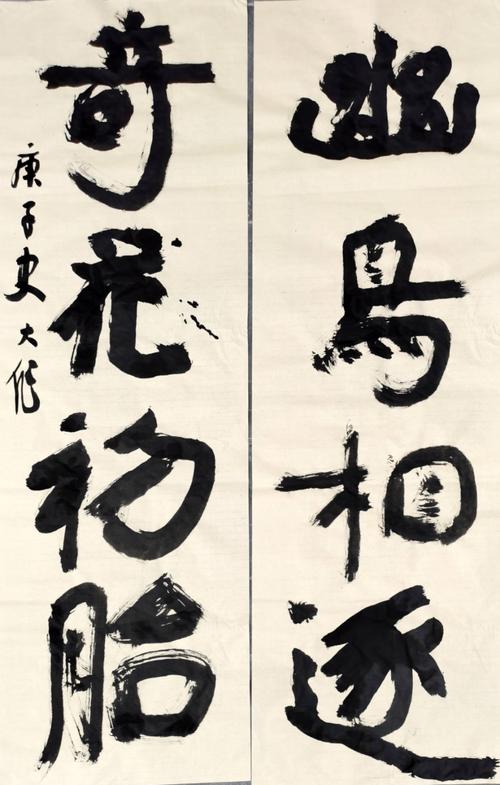 幽鸟相逐
奇花初胎
庚子史大作